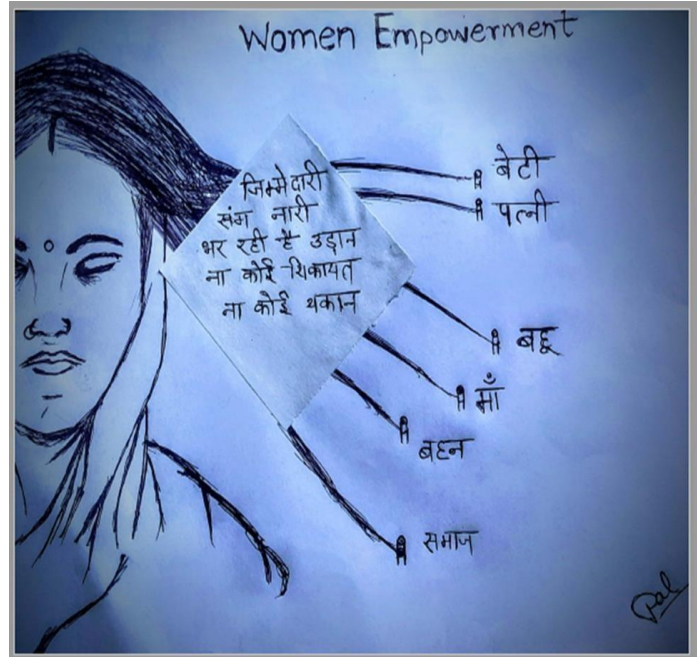 Women Empowerment
जिम्मेदारी
संग नारी
भर रही है उड़ान
ना कोई शिकायत
ना कोई थकान
बेटी
पत्नी
बहू
माँ
बहन
समाज
Pal